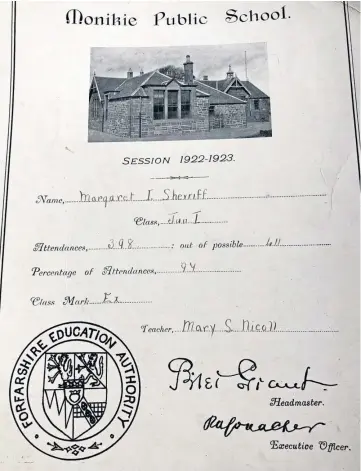 Monikie Public School.
SESSION 1922-1923.
Name, Margaret I. Sherriff
Class, Jun I
Attendances, 398 : out of possible 411
Percentage of Attendances, 94
Class Mark Ex
Teacher, Mary S Nicoll
FORFARSHIRE EDUCATION AUTHORITY
Grant
Headmaster.
Executive Officer.